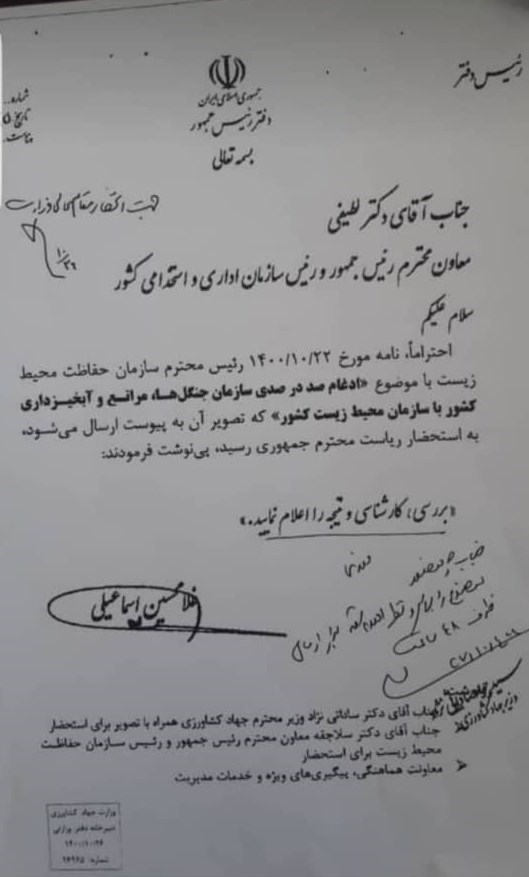 رئیس دفتر
جمهوری اسلامی ایران
دفتر رئیس جمهور
بسمه تعالی
شماره..
تاریخ
پیوست.
جهت استحضار مقام عالی وزارت
۱۰/۲۶
جناب آقای دکتر لطیفی
معاون محترم رئیس جمهور و رئیس سازمان اداری و استخدامی کشور
سلام علیکم
احتراماً، نامه مورخ ۱۴۰۰/۱۰/۲۲ رئیس محترم سازمان حفاظت محیط
زیست با موضوع «ادغام صد در صدی سازمان جنگل‌ها، مراتع و آبخیزداری
کشور با سازمان محیط زیست کشور» که تصویر آن به پیوست ارسال می‌شود،
به استحضار ریاست محترم جمهوری رسید، پی‌نوشت فرمودند:
«بررسی، کارشناسی و نتیجه را اعلام نمایید.»
غلامحسین اسماعیلی
جناب
ظرف ۴۸ ساعت
وزیر جهاد کشاورزی
جناب آقای دکتر ساداتی نژاد وزیر محترم جهاد کشاورزی همراه با تصویر برای استحضار
جناب آقای دکتر سلاجقه معاون محترم رئیس جمهور و رئیس سازمان حفاظت
محیط زیست برای استحضار
معاونت هماهنگی، پیگیری‌های ویژه و خدمات مدیریت
وزارت جهاد کشاورزی
دبیرخانه دفتر وزارتی
۱۴۰۰/۱۰/۲۶
شماره: